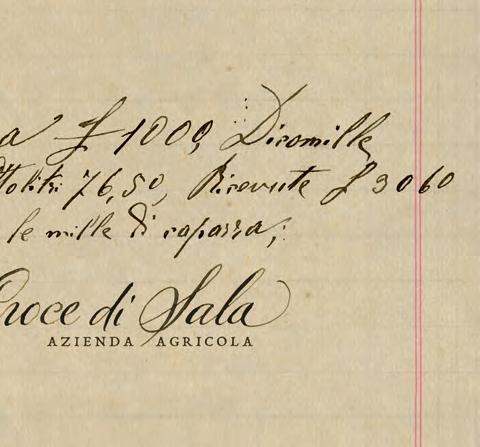 a £ 1000, Dicomille
ttolitri 76,50, Ricevute £ 3060
le mille di caparra;
Croce di Sala
AZIENDA AGRICOLA